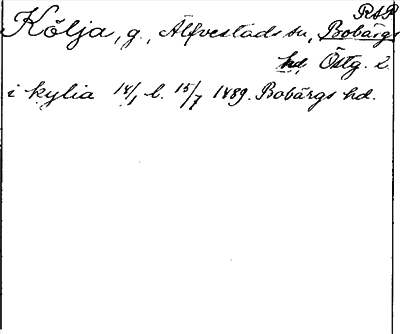 RAP
Kölja, g., Älfvestads sn, Bobärgs
hd, Östg. L.
i kylia 18/1 b. 15/7 1489. Bobärgs hd.